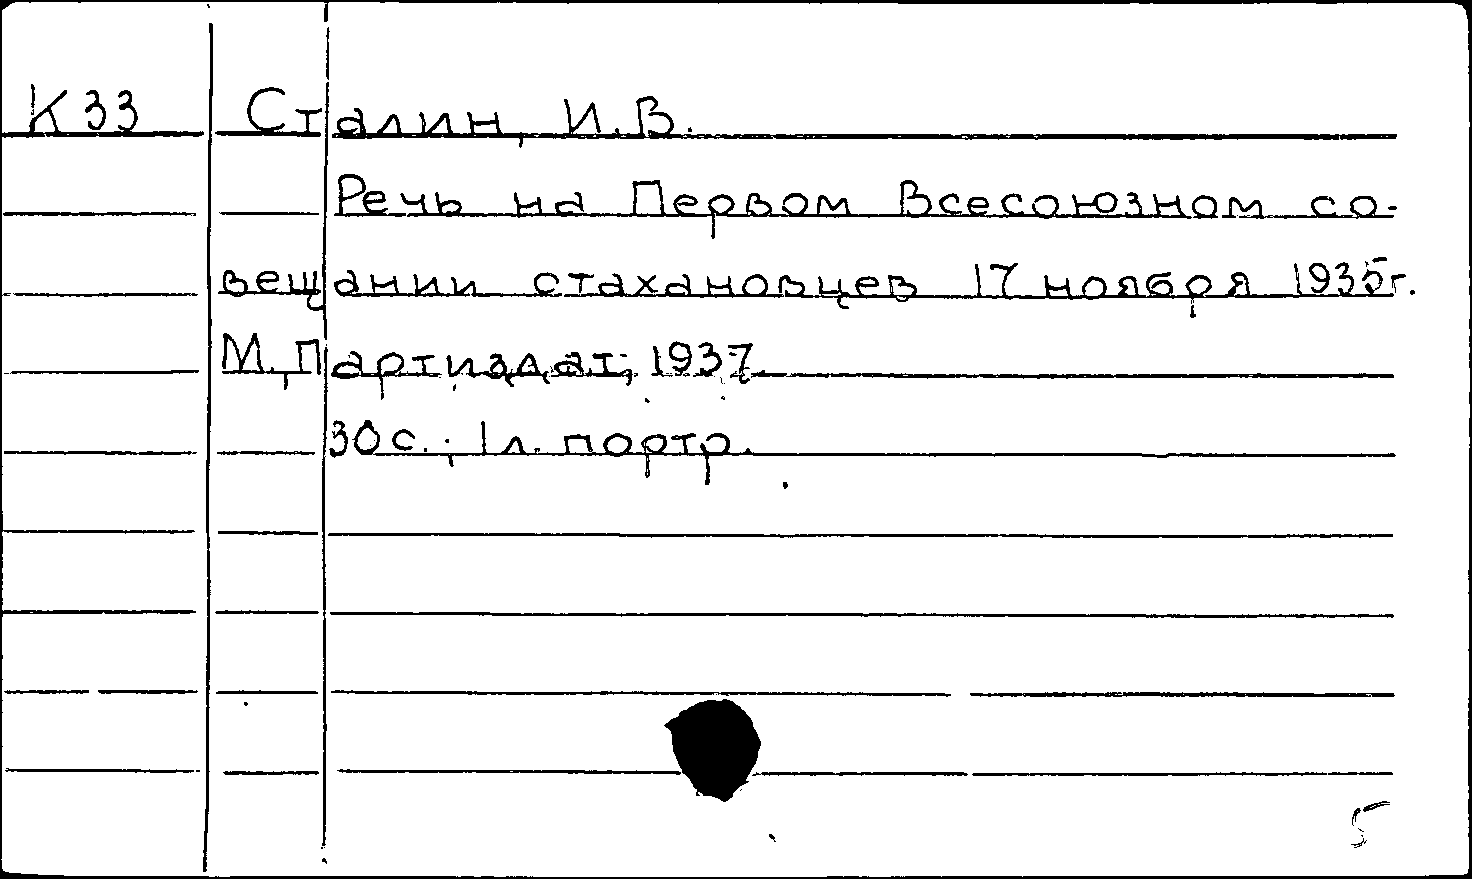 К33 Сталин, И.В.
Речь на Первом Всесоюзном со-
вещании стахановцев 17 ноября 1935г.
М., Партиздат, 1937.
30 с.; 1 л. портр.
5